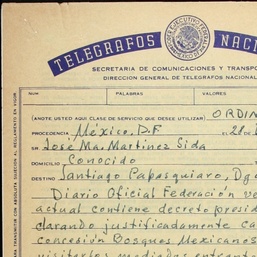 TELEGRAFOS NAC
PODER EJECUTIVO FEDERAL
SECRETARIA DE COMUNICACIONES Y TRANSPO
DIRECCION GENERAL DE TELEGRAFOS NACIONAL
NUM. PALABRAS VALORES
(ANOTE USTED AQUI CLASE DE SERVICIO QUE DESEE UTILIZAR) ORDIN
PROCEDENCIA México, D.F
SR. José Ma. Martínez Sida
DOMICILIO Conocido
DESTINO Santiago Papasquiaro, Dgo
Diario Oficial Federación ve
actual contiene decreto presid
clarando justificadamente ca
concesión Bosques Mexicanos
visitarlos mediados entrant